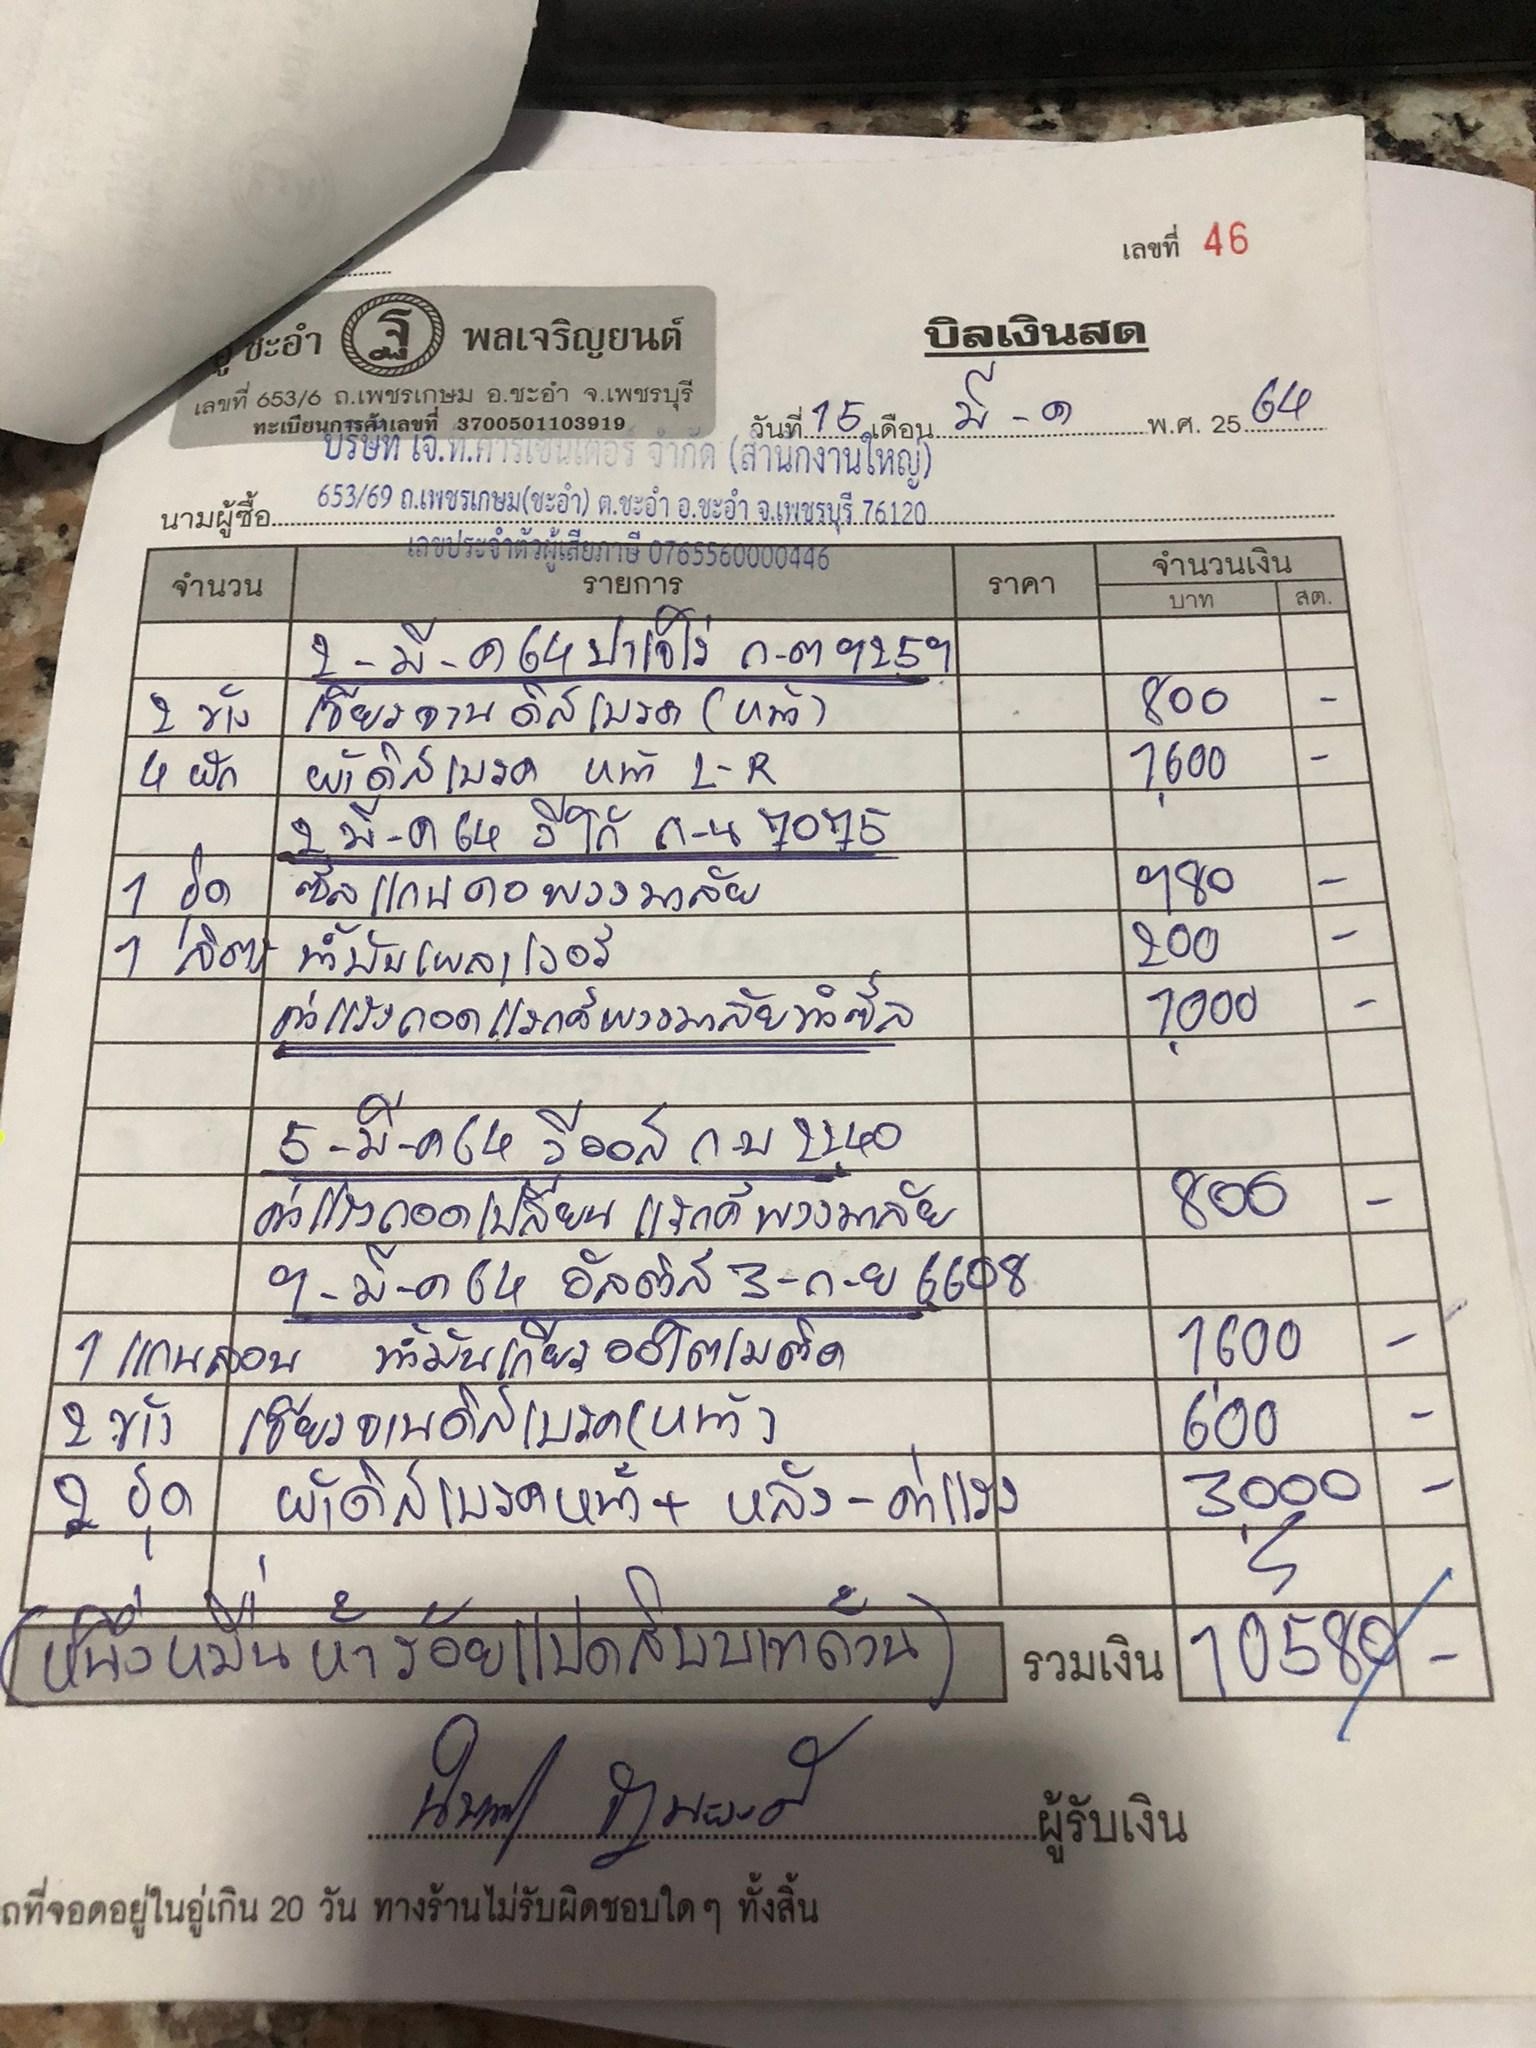 เลขที่ 46
อู่ ชะอำ ฐ พลเจริญยนต์
บิลเงินสด
เลขที่ 653/6 ถ.เพชรเกษม อ.ชะอำ จ.เพชรบุรี
ทะเบียนการค้าเลขที่ 3700501103919
วันที่ 15 เดือน มี-ค พ.ศ. 2564
บริษัท เจ.ที.คาร์เซ็นเตอร์ จำกัด (สำนักงานใหญ่)
653/69 ถ.เพชรเกษม(ชะอำ) ต.ชะอำ อ.ชะอำ จ.เพชรบุรี 76120
นามผู้ซื้อ
เลขประจำตัวผู้เสียภาษี 0765560000446
จำนวน รายการ ราคา จำนวนเงิน
บาท สต.
2-มี-ค 64 ปาเจโร่ ก-ต 9259
2 ข้าง เจียรจานดิสเบรค (หน้า) 800 -
4 ผัก ผ้าดิสเบรค หน้า L-R 1,600 -
2 มี-ค 64 วีโก้ ก-น 7075
1 ชุด ซีลแกนคอพวงมาลัย 980 -
1 ลิตร น้ำมันเพาเวอร์ 200 -
ค่าแรงถอดแรคค์พวงมาลัยทำซีล 1,000 -
5-มี-ค 64 วีออส ก-บ 2240
ค่าแรงถอดเปลี่ยน แรคค์พวงมาลัย 800 -
9-มี-ค 64 อัลติส 3-ก-ย 6608
1 แกนลอน น้ำมันเกียร์ออโตเมติค 1,600 -
2 ข้าง เจียรจานดิสเบรค (หน้า) 600 -
2 ชุด ผ้าดิสเบรคหน้า + หลัง - ค่าแรง 3,000 -
(หนึ่งหมื่นห้าร้อยแปดสิบบาทถ้วน) รวมเงิน 10580 -
ผู้รับเงิน
ถที่จอดอยู่ในอู่เกิน 20 วัน ทางร้านไม่รับผิดชอบใดๆ ทั้งสิ้น